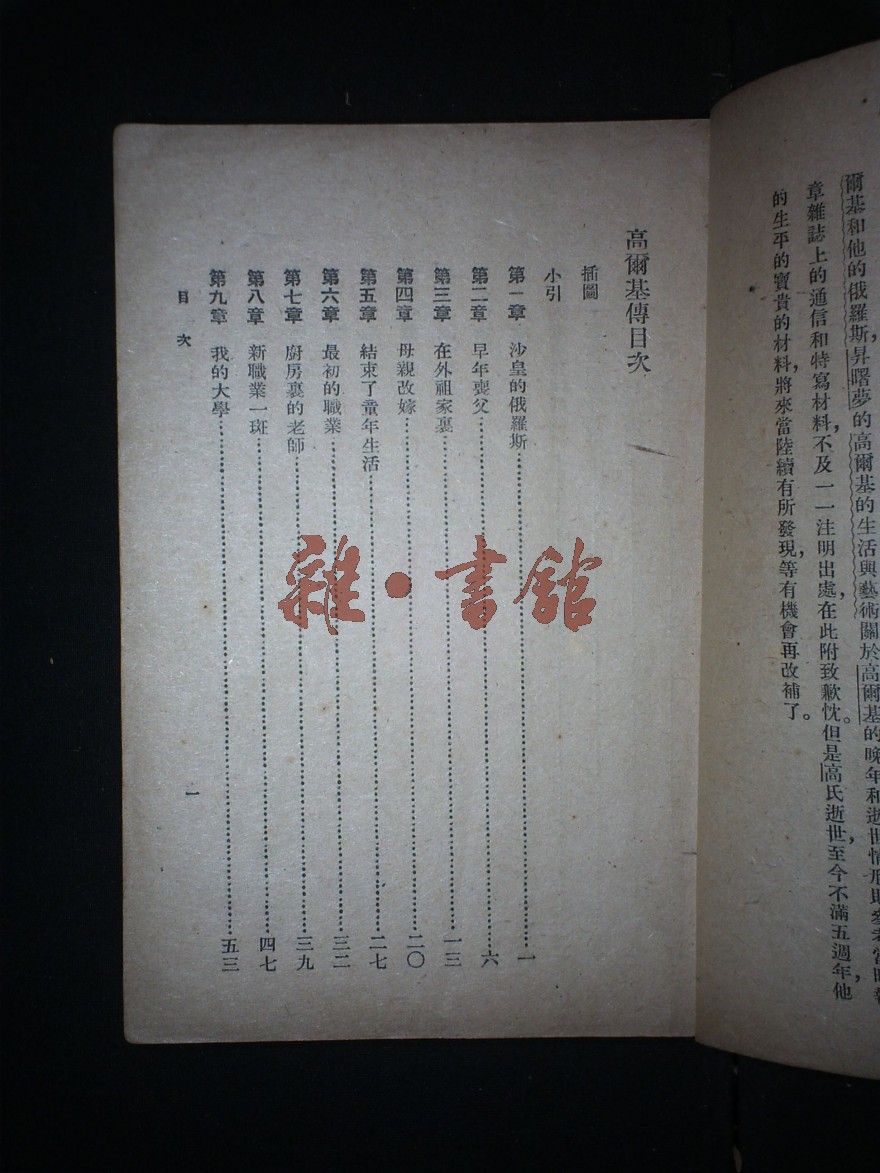 爾基和他的俄羅斯，昇曙夢的高爾基的生活與藝術關於高爾基的晚年和逝世情形則參考當時報
章雜誌上的通信和特寫材料，不及一一注明出處，在此附致歉忱。但是高氏逝世至今不滿五週年，他
的生平的寶貴的材料，將來當陸續有所發現，等有機會再改補了。
高爾基傳目次
插圖
小引
第一章 沙皇的俄羅斯……一
第二章 早年喪父……六
第三章 在外祖家裏……一三
第四章 母親改嫁……二〇
第五章 結束了童年生活……二七
第六章 最初的職業……三二
第七章 廚房裏的老師……三九
第八章 新職業一斑……四七
第九章 我的大學……五三
目次
一
雜·書館